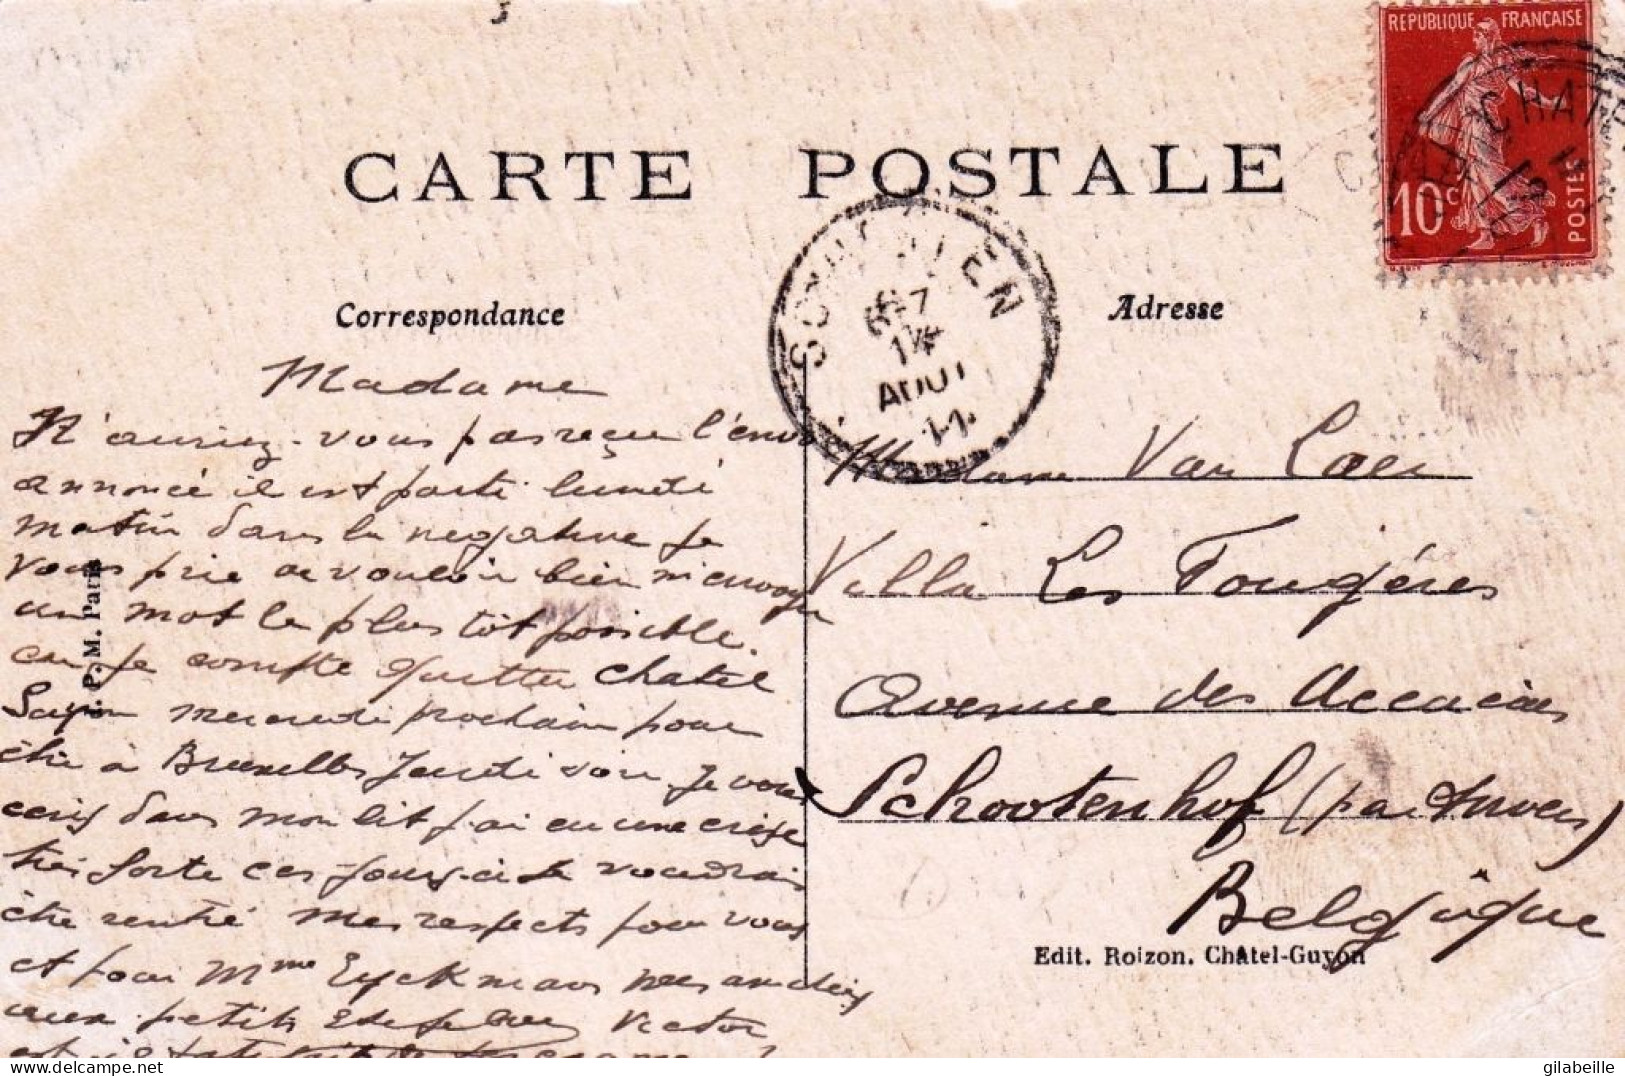 REPUBLIQUE FRANÇAISE
10c
POSTES
CHATE
CARTE POSTALE
SCHOOTEN
6-7
14
AOUT
11
Correspondance
Adresse
Madame
N'auriez-vous pas reçu l'envoi
annoncé il est parti lundi
matin dans la negative je
vous prie de vouloir bien m'envoyer
un mot le plus tôt possible.
car je compte quitter Chatel
Guyon mercredi prochain pour
être à Bruxelles jeudi soir je vous
ecris dans mon lit j'ai eu une crise
très forte ces jours-ci je voudrais
être rentré mes respects pour vous
et pour Mme Eyckmans mes amitiés
aux petits Victor
P. M. Paris
Madame Van Laer
Villa Les Fougéres
Avenue des Accacias
Schootenhof (par Anvers)
Belgique
Edit. Roizon. Châtel-Guyon
gilabeille